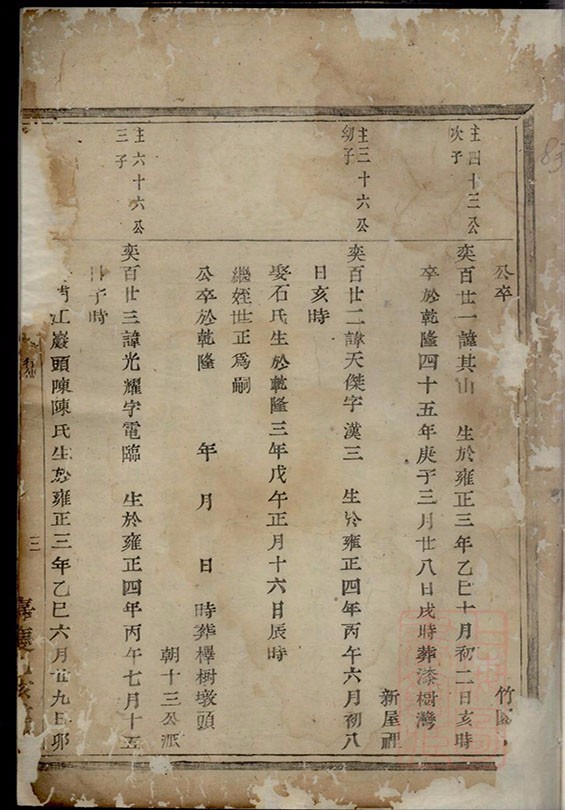 公卒
竹園
圭四十三公
次子
奕百廿一諱其山 生於雍正三年乙巳十月初二日亥時
卒於乾隆四十五年庚子三月廿八日戌時葬漆樹灣
新屋裡
圭三十六公
幼子
奕百廿二諱天傑字漢三 生於雍正四年丙午六月初八
日亥時
娶石氏生於乾隆三年戊午正月十六日辰時
繼姪世正為嗣
公卒於乾隆 年 月 日 時葬櫸樹墩頭
朝十三公派
圭六十六公
三子
奕百廿三諱光耀字電臨 生於雍正四年丙午七月十五
日子時
江巖頭陳陳氏生於雍正三年乙巳六月廿九日卯
三
83